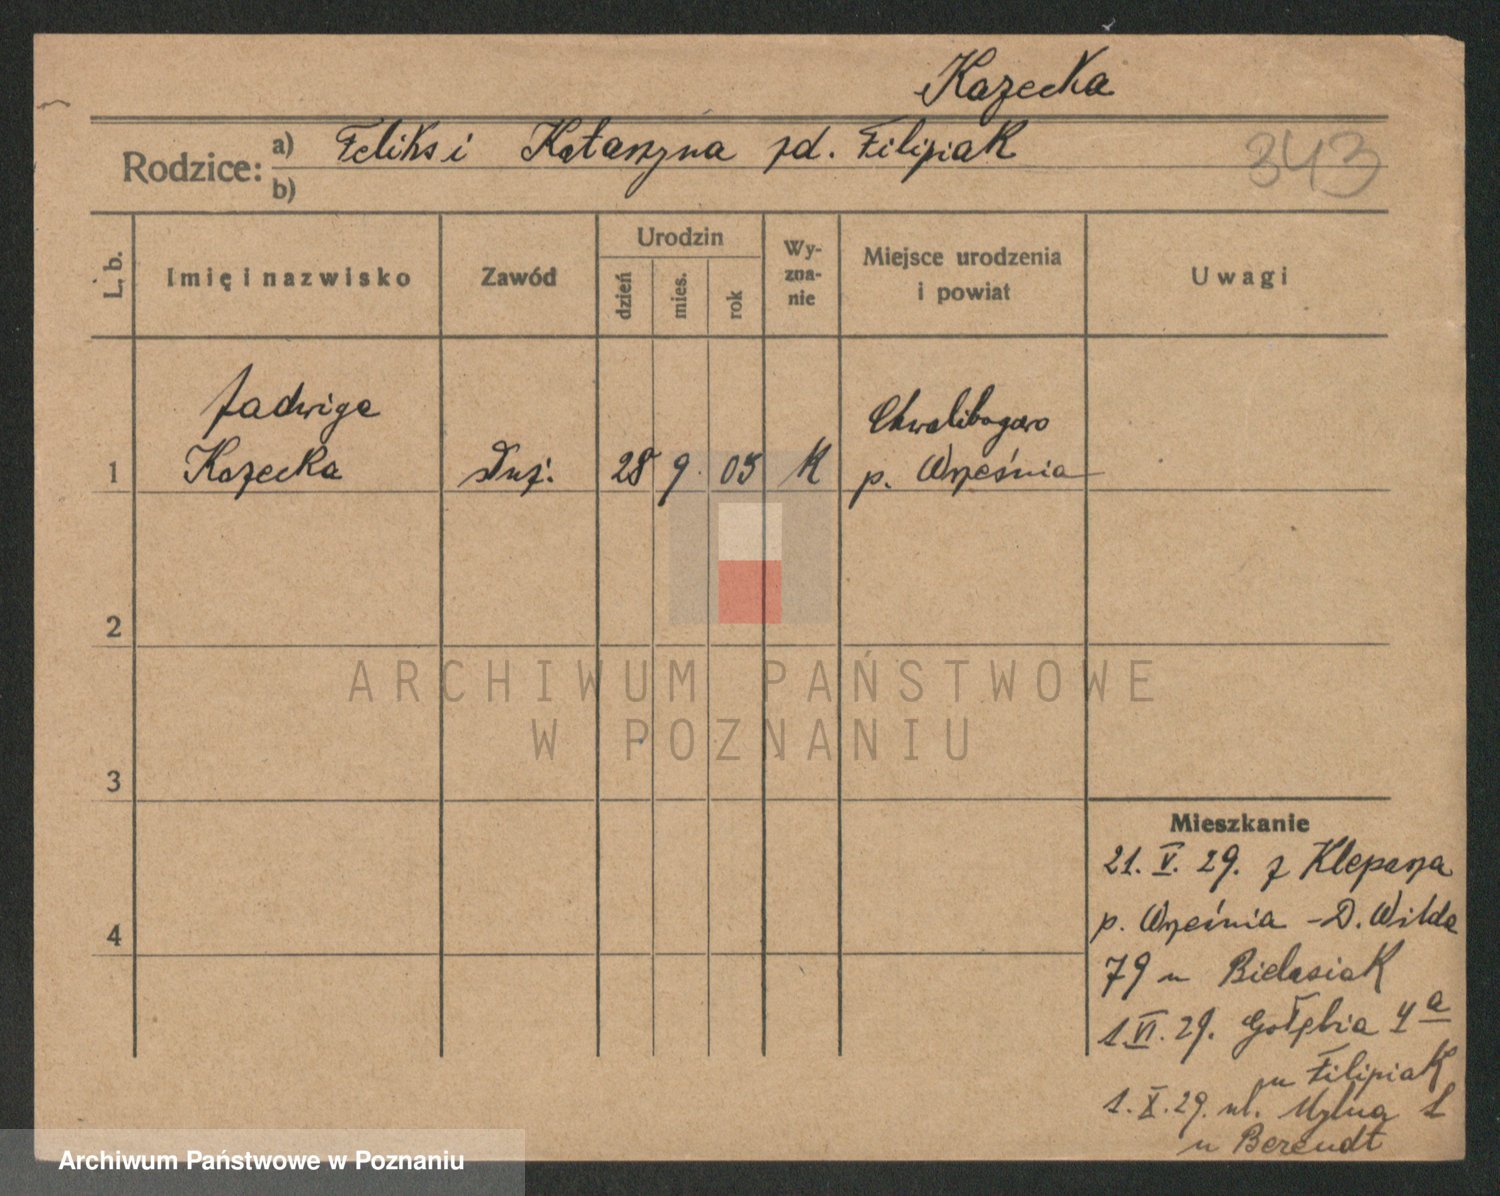 Kazecka
Rodzice:
a) Feliks i Katarzyna zd. Filipiak
b)
343
L. b.
Imię i nazwisko
Zawód
Urodzin
dzień
mies.
rok
Wy-
zna-
nie
Miejsce urodzenia
i powiat
Uwagi
Jadwiga Chwalibogowo
1 Kazecka służ. 28 9. 05 K p. Września
2
3
4
ARCHIWUM PAŃSTWOWE
W POZNANIU
Mieszkanie
21. V. 29. z Kleparza
p. Września - D. Wilda
79 u Bielasiak
1. VI. 29. Gołębia 4a
u Filipiak
1. X. 29. ul. Mylna 1
u Berendt
Archiwum Państwowe w Poznaniu